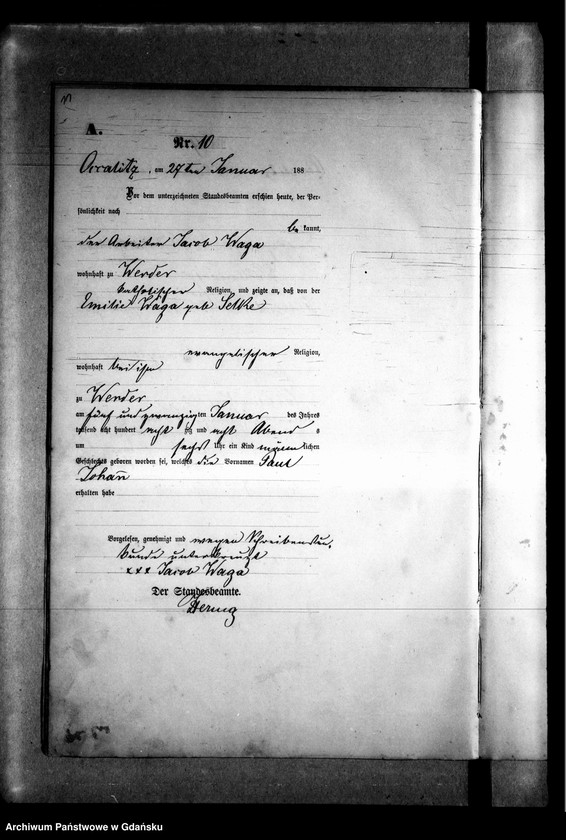 A.
Nr. 10
Occalitz, am 27ten Januar 188
Vor dem unterzeichneten Standesbeamten erschien heute, der Per-
sönlichkeit nach
be kannt,
der Arbeiter Jacob Waga
wohnhaft zu Werder
katholischer Religion, und zeigte an, daß von der
Emilie Waga geb Selke
evangelischer Religion,
wohnhaft bei ihm
zu Werder
am fünf und zwanzigten Januar des Jahres
tausend acht hundert acht zig und acht Abend s
um sechs Uhr ein Kind männlichen
Geschlechts geboren worden sei, welches die Vornamen Paul
Johann
erhalten habe
Vorgelesen, genehmigt und wegen Schreibensun,
kunde unterkreuzt
xxx Jacob Waga
Der Standesbeamte.
Archiwum Państwowe w Gdańsku